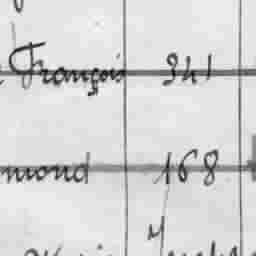 François 341
mond 168